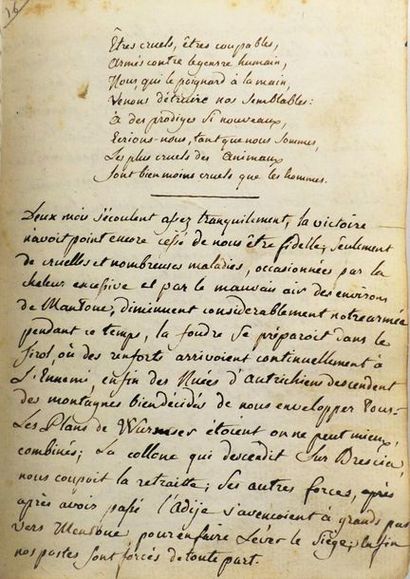 16
Êtres cruels, êtres coupables,
Armés contre le genre humain,
Nous, qui le poignard à la main,
Venons détruire nos semblables:
à des prodiges si nouveaux,
Ecrions-nous, tant que nous sommes,
Les plus cruels des animaux
Sont bien moins cruels que les hommes.
Deux mois s'écoulent assez tranquilement, la victoire
n'avoit point encore cessé de nous être fidelle, seulement
de cruelles et nombreuses maladies, occasionnées par la
chaleur excessive et par le mauvais air des environs
de Mantoue, diminuent considerablement notre armée
pendant ce temps, la foudre se préparoit dans le
Tirol, où des renforts arrivoient continuellement à
L'Ennemi, enfin des Nuées d'Autrichiens descendent
des montagnes bien décidés de nous envelopper tous-
Les Plans de Wurmser étoient on ne peut mieux
combinés; La collone qui descendit sur Brescia,
nous coupoit la retraitte; Ses autres forces, après
après avoir passé l'Adije s'avencoient à grands pas
vers Mentoue, pour en faire Lever le Siège; enfin
nos postes sont forcés de toute part.